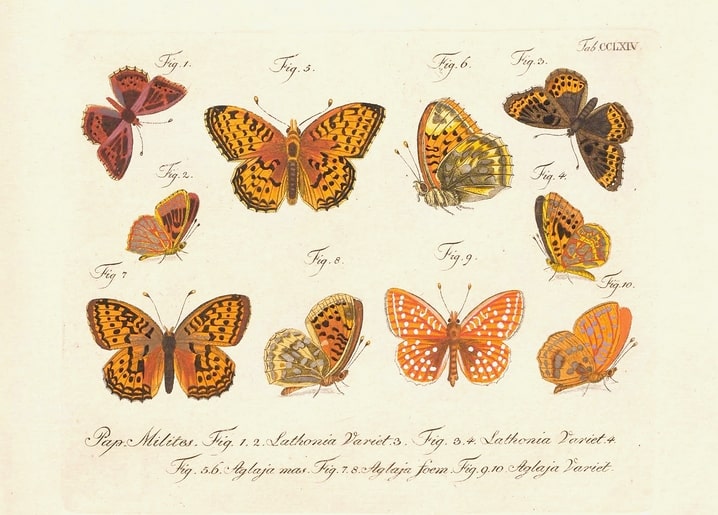 Tab CCLXIV.
Fig. 1.
Fig. 5.
Fig. 6.
Fig. 3.
Fig. 2.
Fig. 4.
Fig. 8.
Fig. 9.
Fig 7
Fig. 10.
Pap. Milites. Fig. 1. 2. Lathonia Variet. 3. Fig. 3. 4. Lathonia Variet. 4.
Fig. 5.6. Aglaja mas. Fig. 7. 8. Aglaja foem. Fig. 9.10 Aglaja Variet.